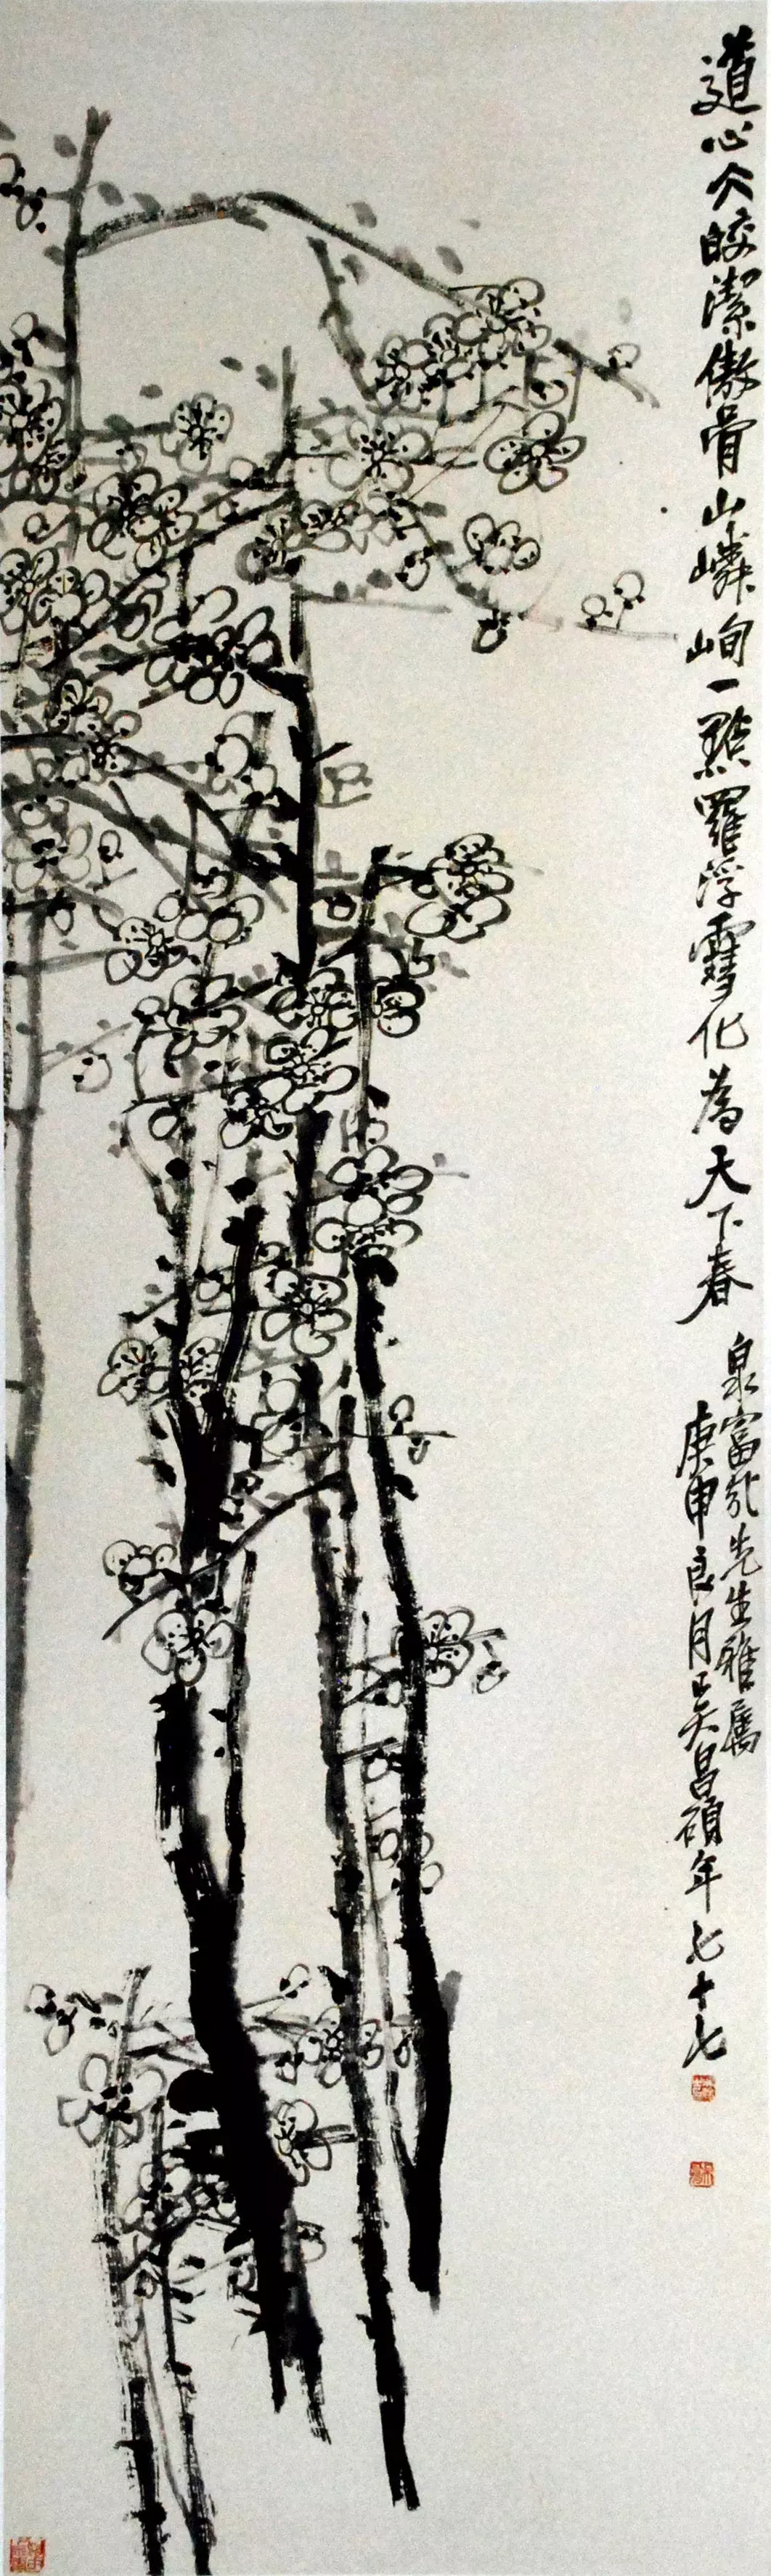 道心仌皎潔傲骨山嶙峋一點羅浮雪化為天下春
泉富先生雅屬
庚申良月吳昌碩年七十七